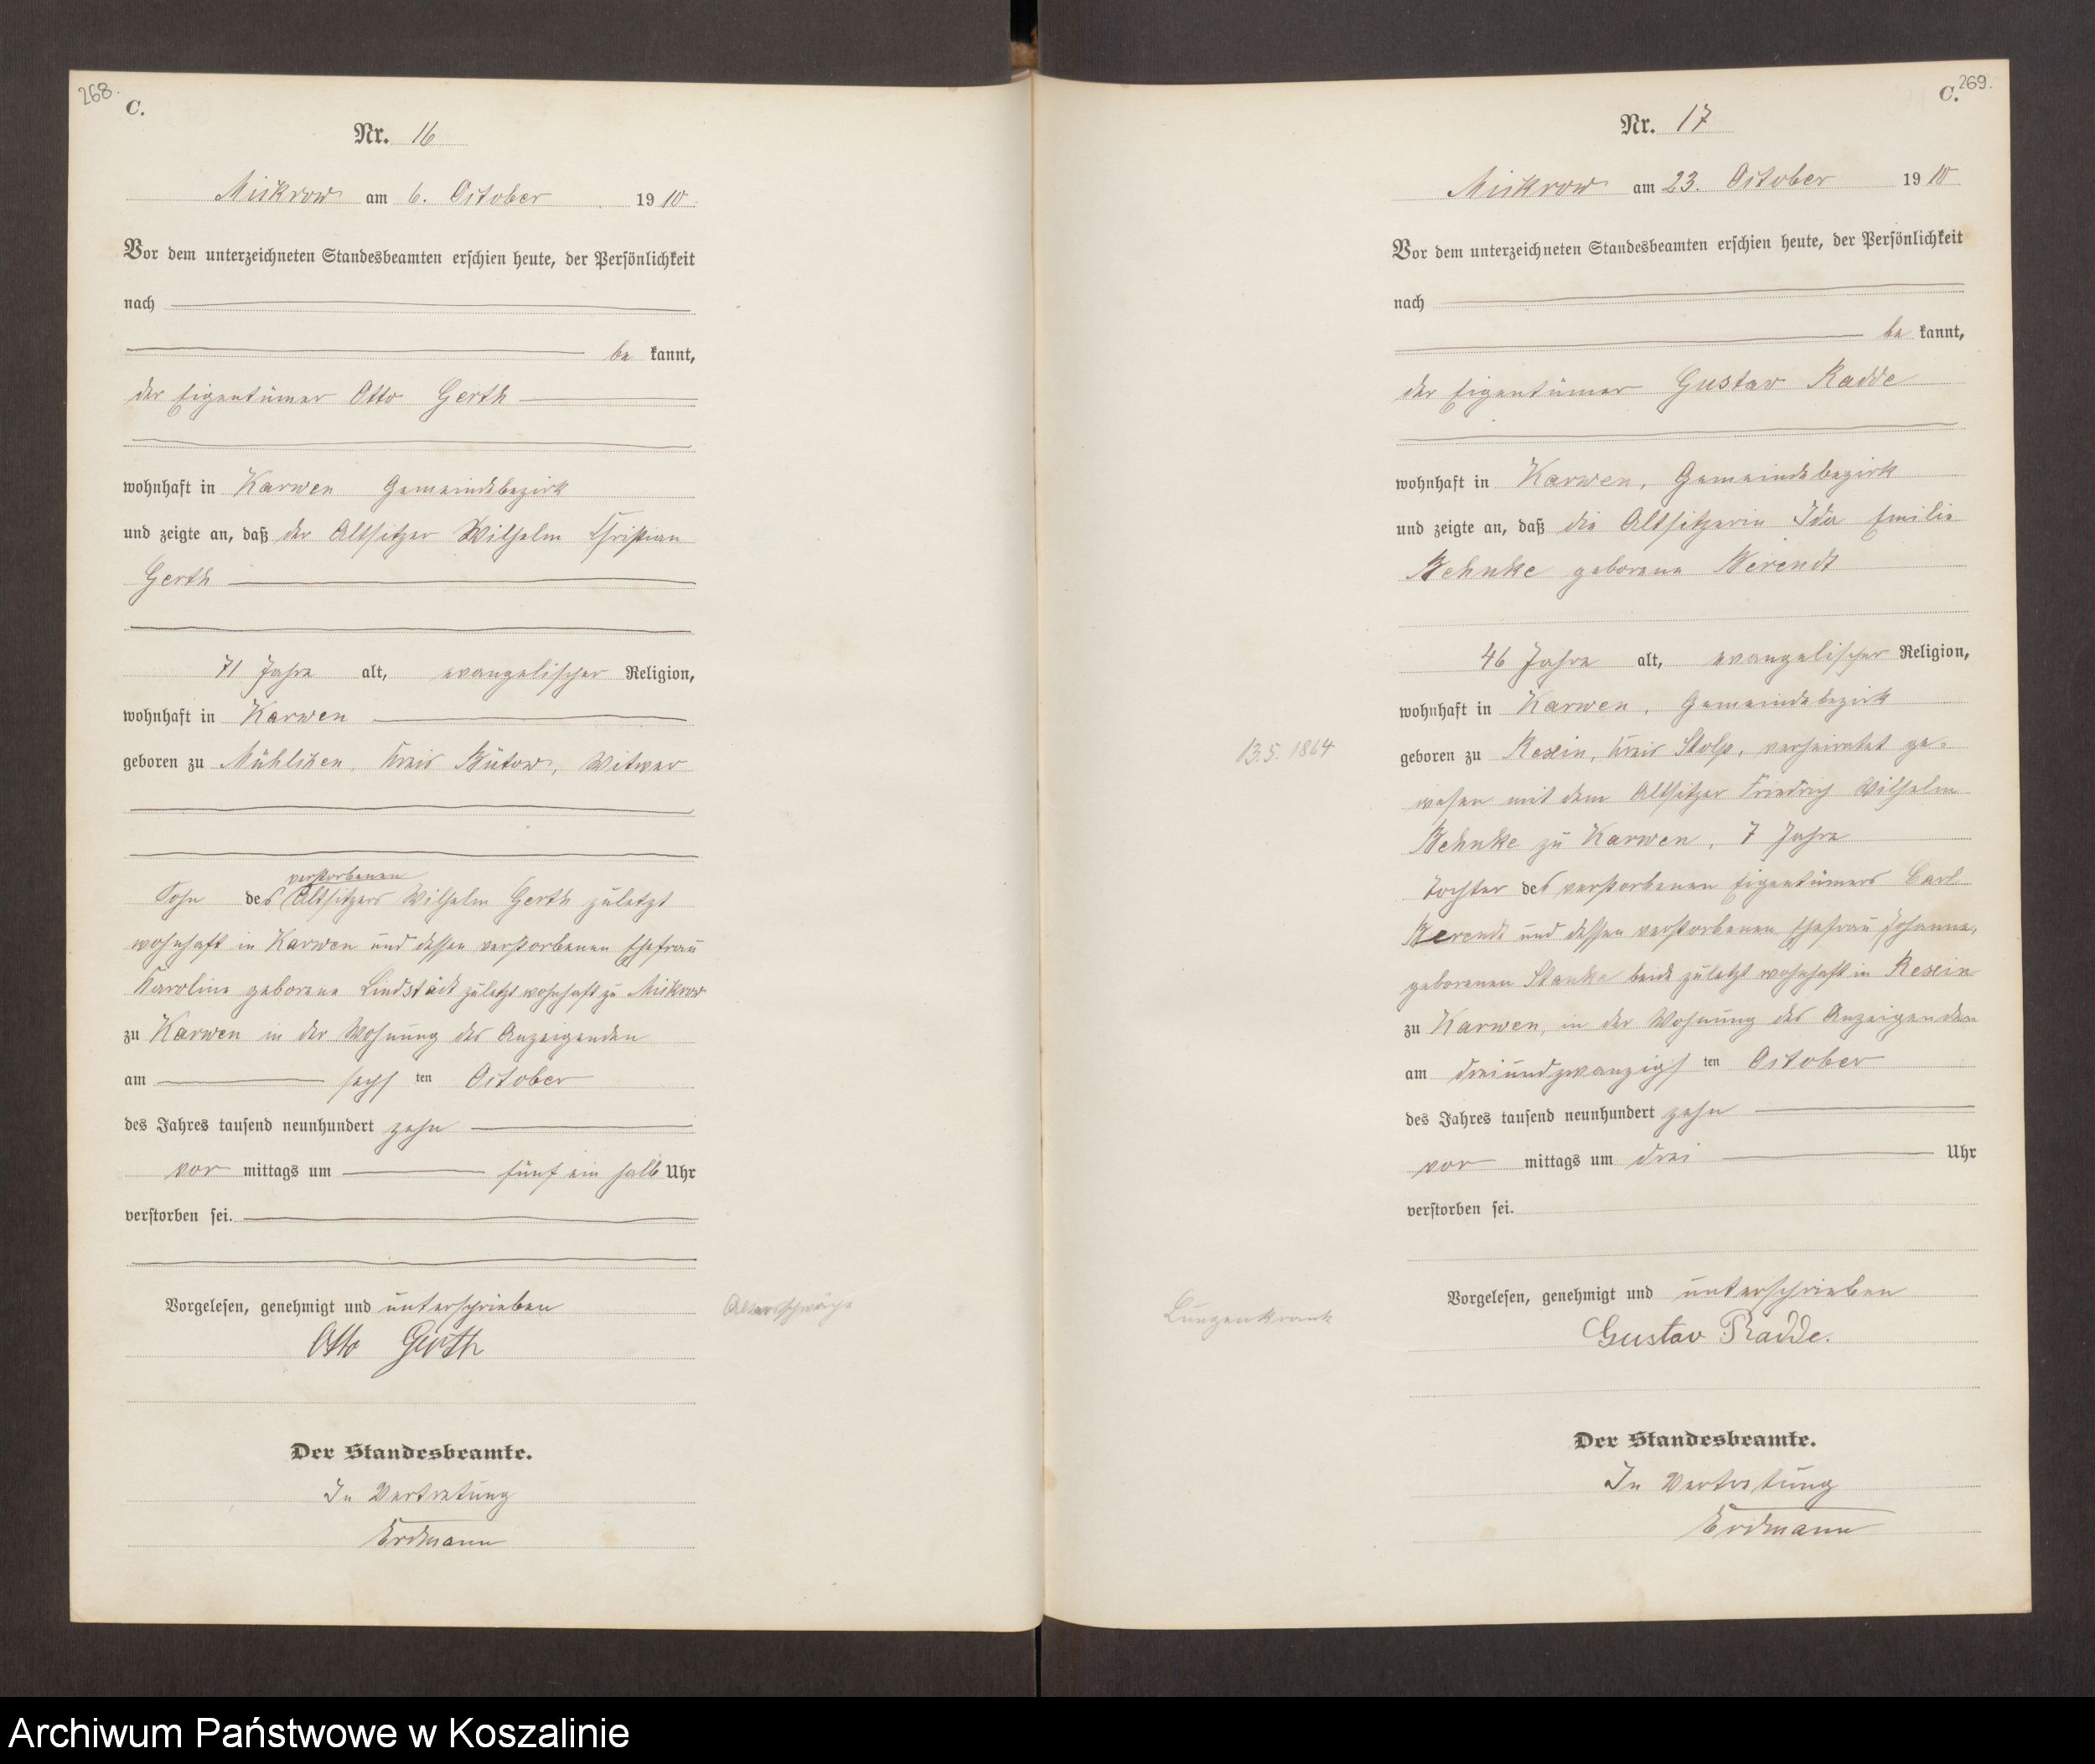 268.
C.
Nr. 16
Mickrow am 6. October 1910
Vor dem unterzeichneten Standesbeamten erschien heute, der Persönlichkeit
nach
be kannt,
der Eigentümer Otto Gerth
wohnhaft in Karwen Gemeindebezirk
und zeigte an, daß der Altsitzer Wilhelm Christian
Gerth
71 Jahre alt, evangelischer Religion,
wohnhaft in Karwen
geboren zu Kreis Bütow, Witwer
verstorbenen
Sohn des Altsitzers Wilhelm Gerth zuletzt
wohnhaft in Karwen und dessen verstorbenen Ehefrau
Karoline geborene zuletzt wohnhaft zu Mickrow
zu Karwen in der Wohnung des Anzeigenden
am sechs ten October
des Jahres tausend neunhundert zehn
vor mittags um fünf ein halb Uhr
verstorben sei.
Vorgelesen, genehmigt und unterschrieben
Altersschwäche
Otto Gerth
Der Standesbeamte.
In Vertretung
Erdmann
C. 269.
Nr. 17
Mickrow am 23. October 1910
Vor dem unterzeichneten Standesbeamten erschien heute, der Persönlichkeit
nach
be kannt,
der Eigentümer Gustav Radde
wohnhaft in Karwen, Gemeindebezirk
und zeigte an, daß die Altsitzerin Ida Emilie
Behnke geborene Berendt
46 Jahre alt, evangelischer Religion,
wohnhaft in Karwen, Gemeindebezirk
13.5.1864
geboren zu Rexin, Kreis Stolp, verheiratet ge-
wesen mit dem Altsitzer Friedrich Wilhelm
Behnke zu Karwen, 7 Jahre
Tochter des verstorbenen Eigentümers Carl
Berendt und dessen verstorbenen Ehefrau Johanna,
geborenen beide zuletzt wohnhaft in Rexin
zu Karwen, in der Wohnung des Anzeigenden
am dreiundzwanzigs ten October
des Jahres tausend neunhundert zehn
vor mittags um drei Uhr
verstorben sei.
Vorgelesen, genehmigt und unterschrieben
Lungenkrank
Gustav Radde.
Der Standesbeamte.
In Vertretung
Erdmann
Archiwum Państwowe w Koszalinie